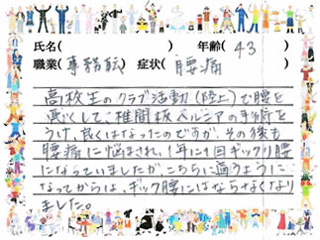 氏名(　　　) 年齢( 43 )
職業( 事務職 ) 症状( 腰痛 )
高校生のクラブ活動(陸上)で腰を
悪くして、椎間板ヘルニアの手術を
うけ、良くはなったのですが、その後も
腰痛に悩まされ、1年に1回ギックリ腰
になっていましたが、こちらに通うように
なってからは、ギック腰にはならなくなり
ました。